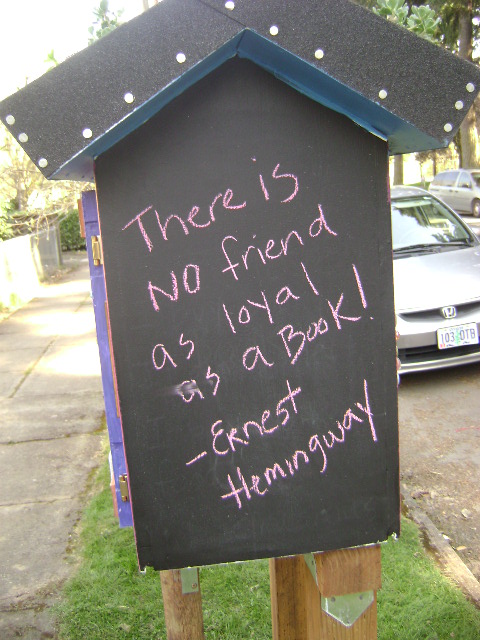 There is
NO friend
as loyal
as a Book!
-Ernest
Hemingway
103 OTB